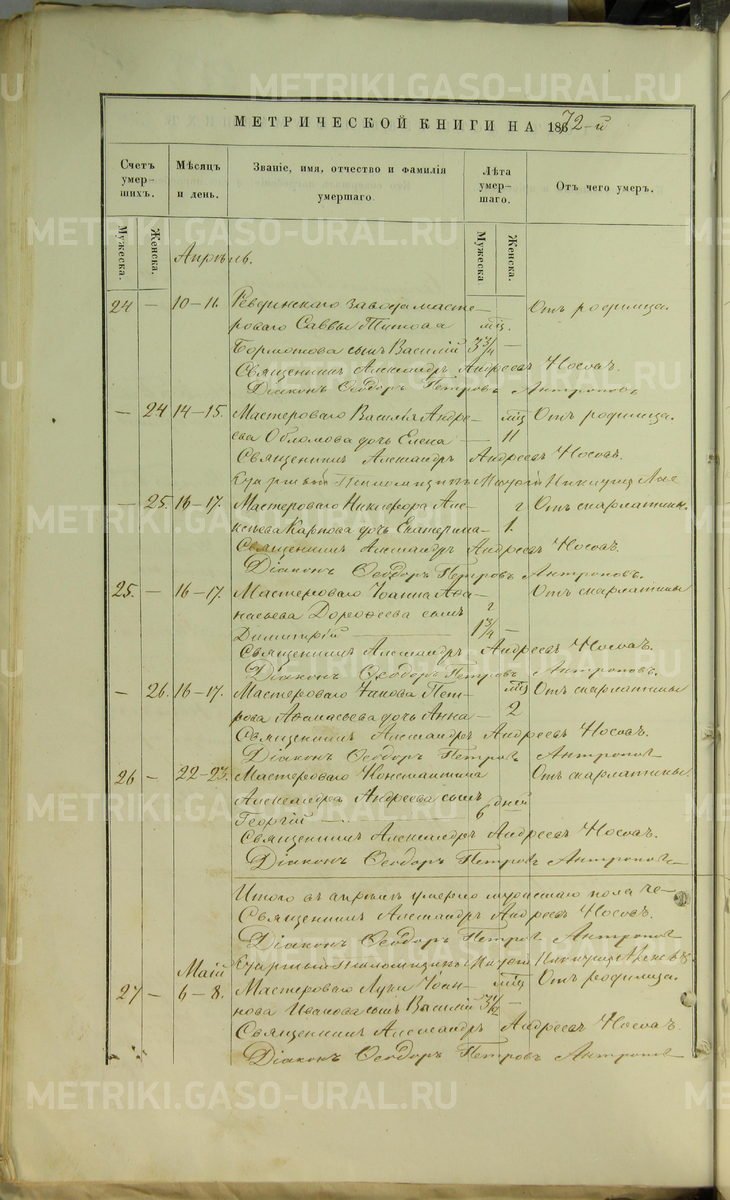 МЕТРИЧЕСКОЙ КНИГИ НА 1872-й
Счетъ умер-шихъ. Мѣсяцъ и день. Званіе, имя, отчество и фамилія умершаго. Лѣта умер-шаго. Отъ чего умеръ.
Мужеска. Женска. Мужеска Женска.
Апрѣль.
24 — 10–11. Ревдинскаго завода масте- Отъ родимца.
роваго Саввы Титова мц.
Бормотова сынъ Василій 3 3/4 —
Священникъ Александръ Андреевъ Носовъ.
Діаконъ Ѳеодоръ Петровъ Антроповъ
— 24 14–15. Мастероваго Василья Андре- мц Отъ родимца.
ева Обломова дочь Елена — 11
Священникъ Александръ Андреевъ Носовъ.
— 25. 16–17. Мастероваго Никифора Але- г Отъ скарлатины.
ксѣева Карпова дочь Екатерина — 1.
Священникъ Александръ Андреевъ Носовъ.
Діаконъ Ѳеодоръ Петровъ Антроповъ.
25. — 16–17. Мастероваго Іоанна Аѳа- Отъ скарлатины
насьева Дороѳеева сынъ г
Димитрій 1 3/4 —
Священникъ Александръ Андреевъ Носовъ.
Діаконъ Ѳеодоръ Петровъ Антроповъ.
— 26. 16–17. Мастероваго Іакова Пет- мц Отъ скарлатины
рова Аѳанасьева дочь Анна — 2
Священникъ Александръ Андреевъ Носовъ.
Діаконъ Ѳеодоръ Петровъ Антроповъ
26 — 22–23. Мастероваго Константина Отъ скарлатины.
Александра Андреева сынъ дней
Георгій — 6
Священникъ Александръ Андреевъ Носовъ.
Діаконъ Ѳеодоръ Петровъ Антроповъ
Итого въ апрѣлѣ умерло мужескаго пола
Священникъ Александръ Андреевъ Носовъ.
Діаконъ Ѳеодоръ Петровъ Антроповъ
Маій
27 — 6–8. Мастероваго Луки Іоан- мц Отъ родимца.
нова Иванова сынъ Василій —
Священникъ Александръ Андреевъ Носовъ.
Діаконъ Ѳеодоръ Петровъ Антроповъ
METRIKI.GASO-URAL.RU